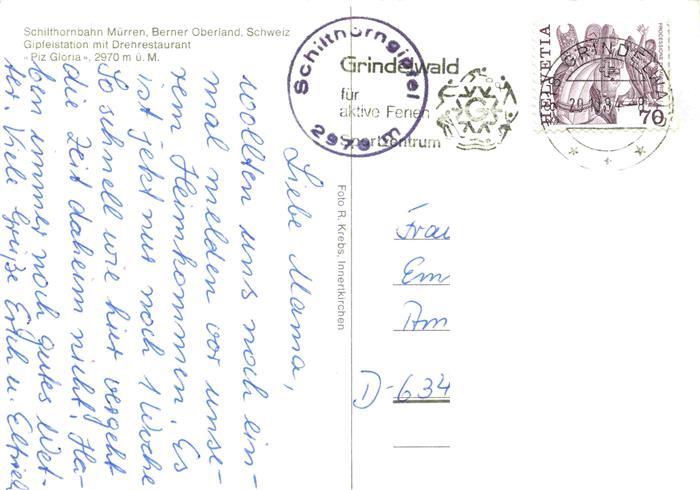 Schilthornbahn Mürren, Berner Oberland, Schweiz
Gipfelstation mit Drehrestaurant
«Piz Gloria», 2970 m ü. M.
Schilthorngipfel
2970 m
Grindelwald
für
aktive Ferien
Sportzentrum
HELVETIA
70
GRINDELWALD
Liebe Mama,
wollten uns noch ein-
mal melden vor unse-
rem Heimkommen. Es
ist jetzt nur noch 1 Woche
So schnell wie hier vergeht
die Zeit daheim nicht! Ha-
ben immer noch gutes Wet-
ter. Viele Grüße Erich u.
Foto R. Krebs, Innertkirchen
Frau
Em
Am
D-634